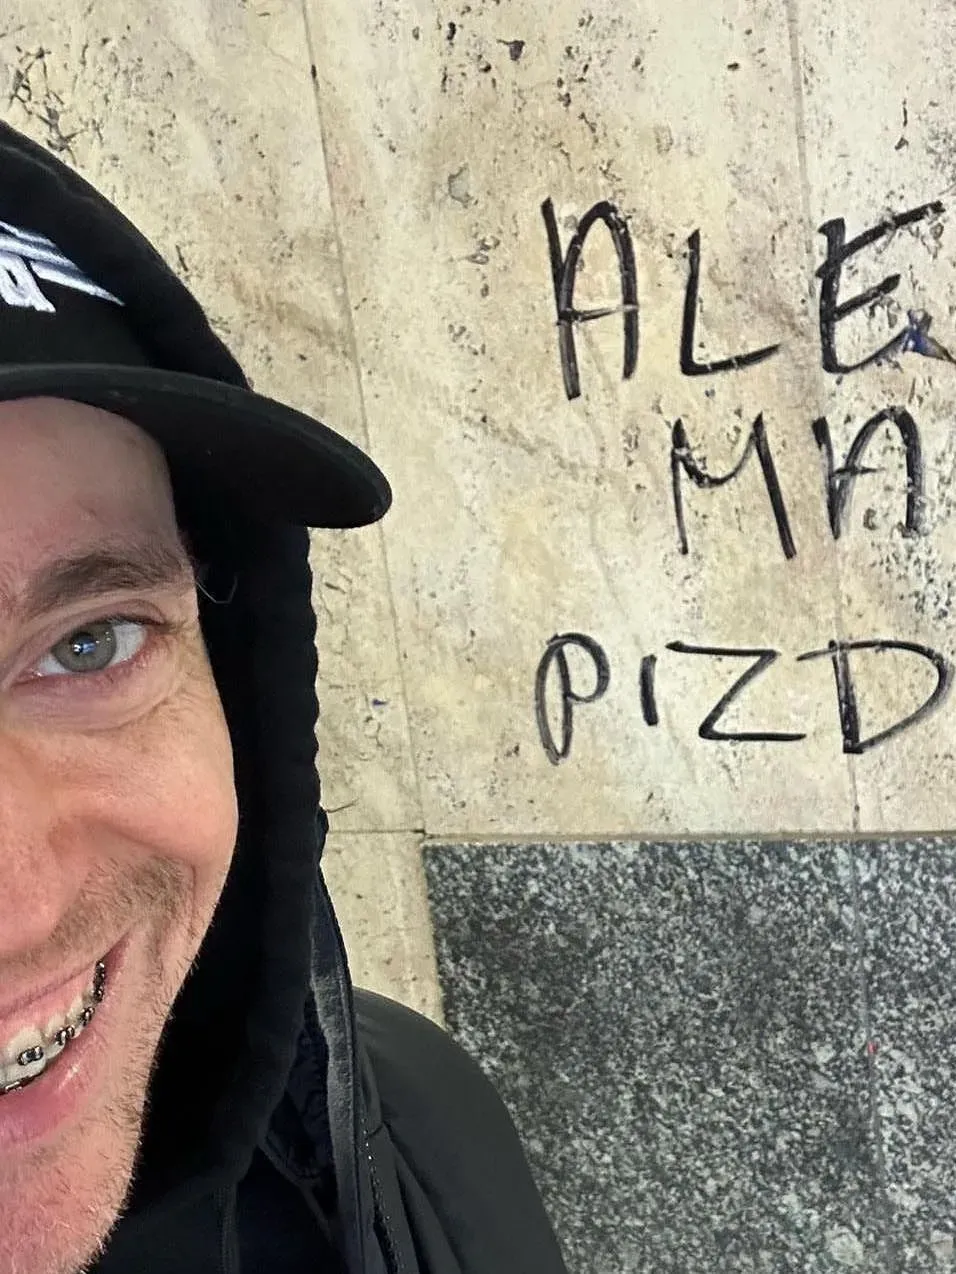 ALE
MA
PIZD